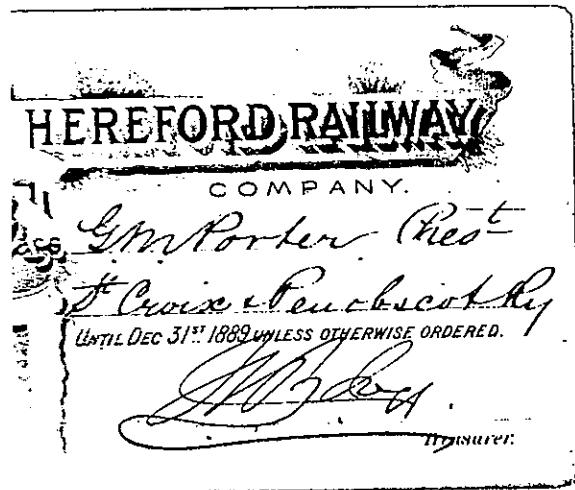 HEREFORD RAILWAY
COMPANY.
G M Porter Prest
St Croix & Penobscot Ry
UNTIL DEC 31ST 1889 UNLESS OTHERWISE ORDERED.
Treasurer.